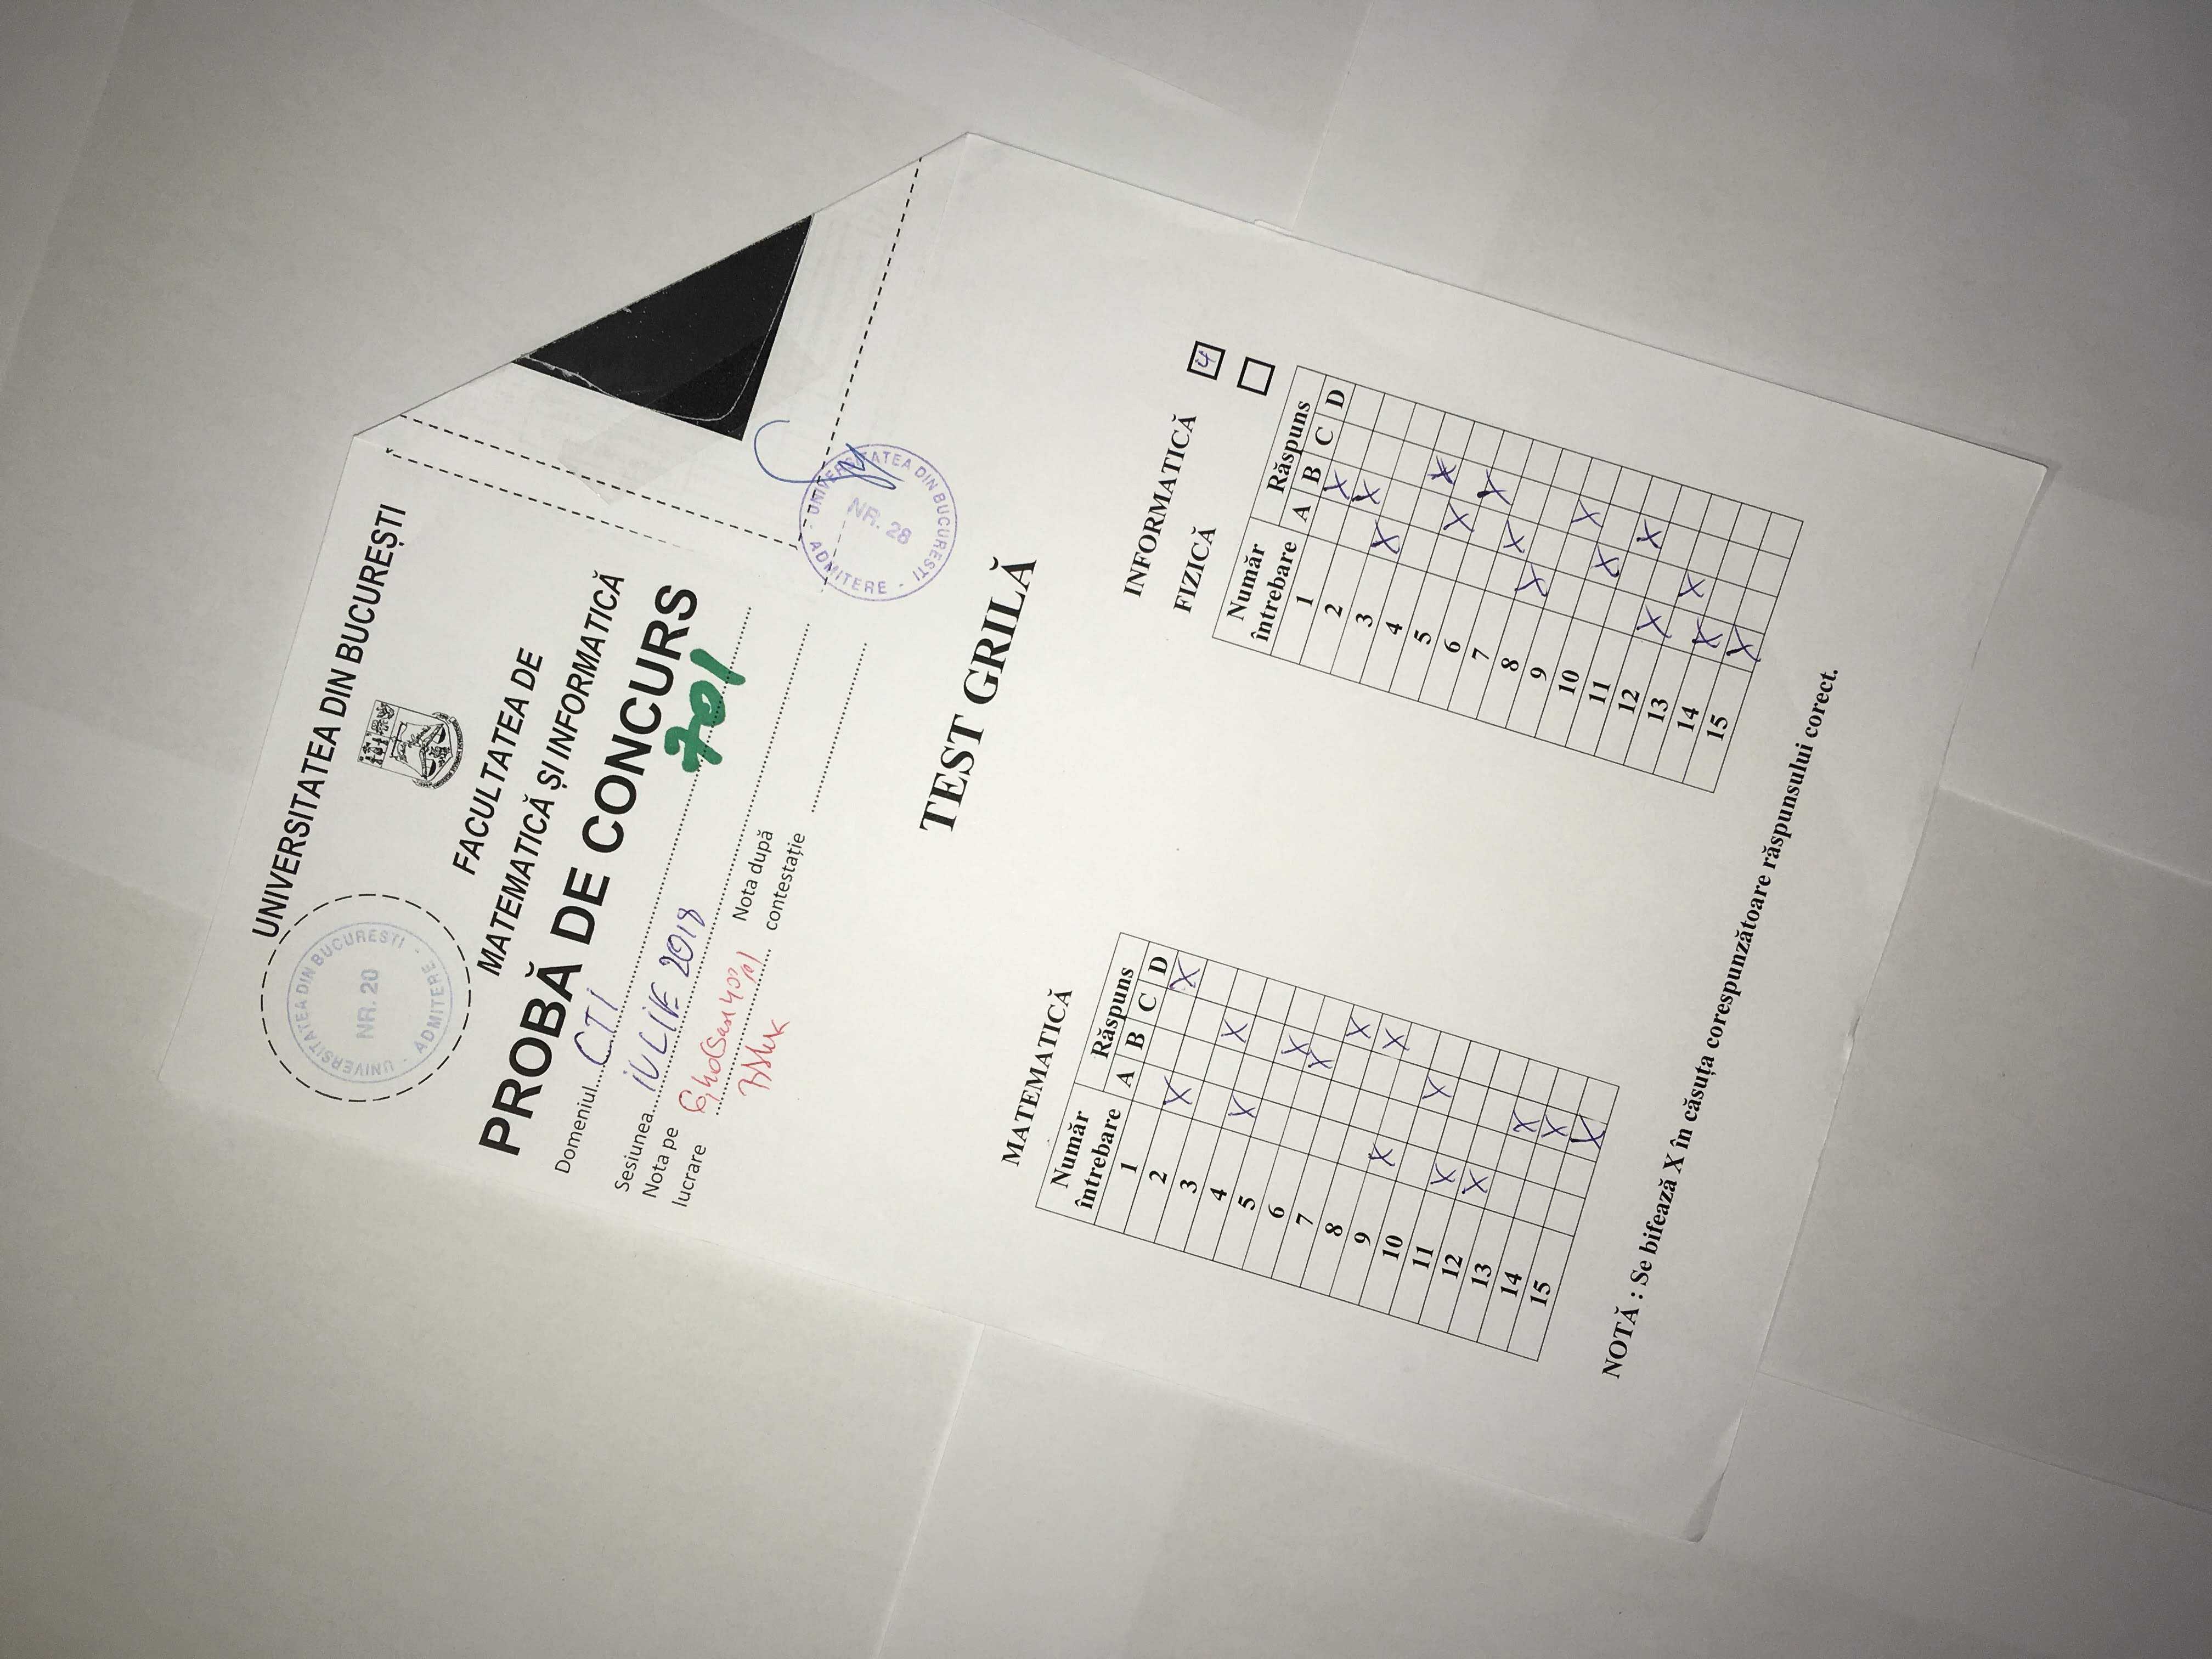 UNIVERSITATEA DIN BUCUREȘTI
UNIVERSITATEA DIN BUCURESTI - ADMITERE -
NR. 20
FACULTATEA DE
MATEMATICĂ ȘI INFORMATICĂ
PROBĂ DE CONCURS
Domeniul CTI
701
Sesiunea iULiE 2018
Nota pe
lucrare 6,40 (Sase 40%)
Nota după
contestație
UNIVERSITATEA DIN BUCURESTI - ADMITERE -
NR. 28
TEST GRILĂ
MATEMATICĂ
Număr
întrebare
Răspuns
A B C D
1 X
2 X
3 X
4 X
5 X
6 X
7 X
8 X
9 X
10 X
11 X
12 X
13 X
14 X
15 X
INFORMATICĂ
FIZICĂ
Număr
întrebare
Răspuns
A B C D
1 X
2 X
3 X
4 X
5 X
6 X
7 X
8 X
9 X
10 X
11 X
12 X
13 X
14 X
15 X
NOTĂ : Se bifează X în căsuța corespunzătoare răspunsului corect.